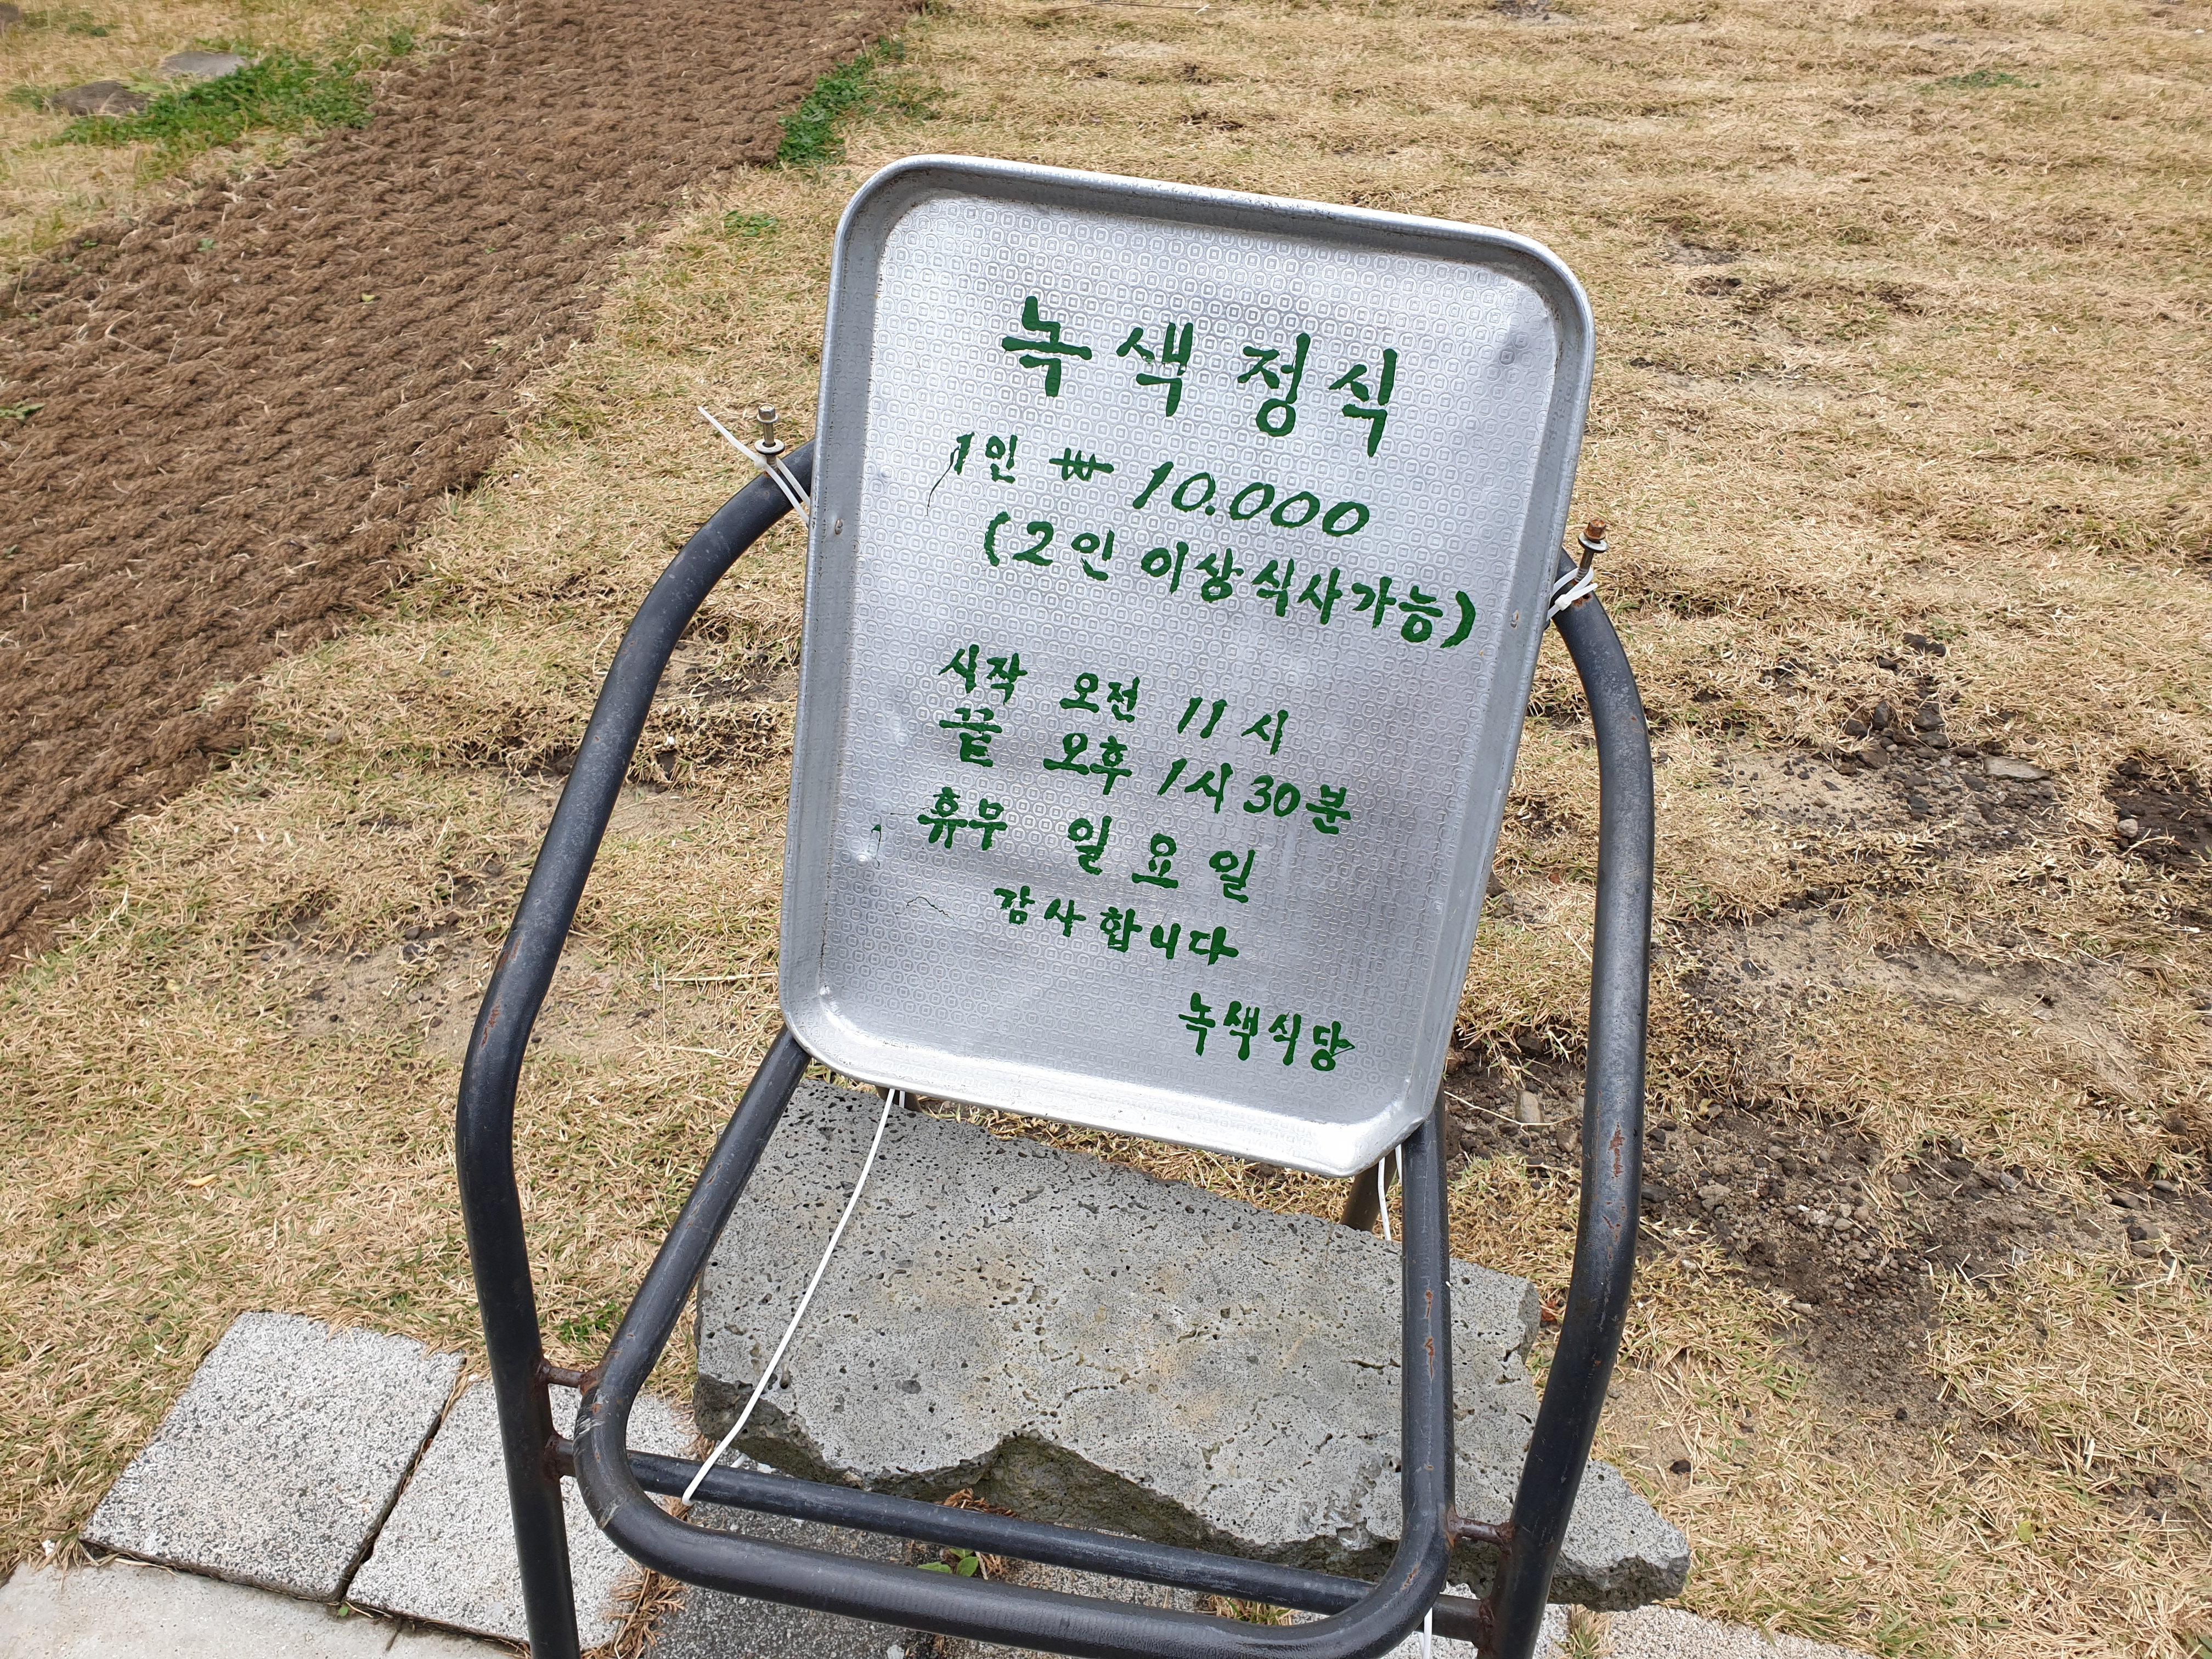 녹색정식
1인 ₩ 10.000
(2인 이상 식사가능)
시작 오전 11시
끝 오후 1시 30분
휴무 일요일
감사합니다
녹색식당